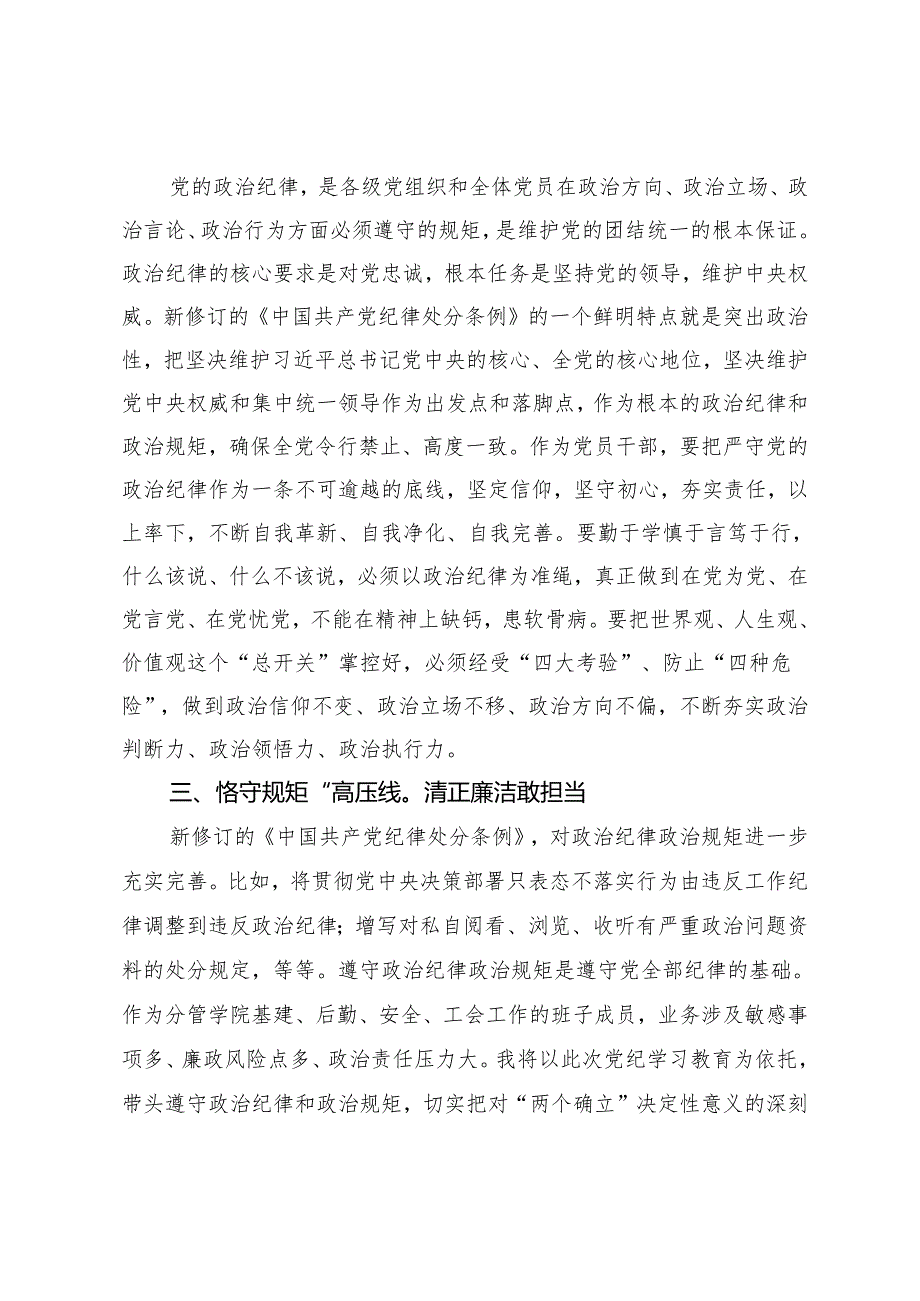 党的政治纪律，是各级党组织和全体党员在政治方向、政治立场、政
治言论、政治行为方面必须遵守的规矩，是维护党的团结统一的根本保证。
政治纪律的核心要求是对党忠诚，根本任务是坚持党的领导，维护中央权
威。新修订的《中国共产党纪律处分条例》的一个鲜明特点就是突出政治
性，把坚决维护习近平总书记党中央的核心、全党的核心地位，坚决维护
党中央权威和集中统一领导作为出发点和落脚点，作为根本的政治纪律和
政治规矩，确保全党令行禁止、高度一致。作为党员干部，要把严守党的
政治纪律作为一条不可逾越的底线，坚定信仰，坚守初心，夯实责任，以
上率下，不断自我革新、自我净化、自我完善。要勤于学慎于言笃于行，
什么该说、什么不该说，必须以政治纪律为准绳，真正做到在党为党、在
党言党、在党忧党，不能在精神上缺钙，患软骨病。要把世界观、人生观、
价值观这个“总开关”掌控好，必须经受“四大考验”、防止“四种危
险”，做到政治信仰不变、政治立场不移、政治方向不偏，不断夯实政治
判断力、政治领悟力、政治执行力。
三、恪守规矩“高压线。清正廉洁敢担当
新修订的《中国共产党纪律处分条例》，对政治纪律政治规矩进一步
充实完善。比如，将贯彻党中央决策部署只表态不落实行为由违反工作纪
律调整到违反政治纪律；增写对私自阅看、浏览、收听有严重政治问题资
料的处分规定，等等。遵守政治纪律政治规矩是遵守党全部纪律的基础。
作为分管学院基建、后勤、安全、工会工作的班子成员，业务涉及敏感事
项多、廉政风险点多、政治责任压力大。我将以此次党纪学习教育为依托，
带头遵守政治纪律和政治规矩，切实把对“两个确立”决定性意义的深刻